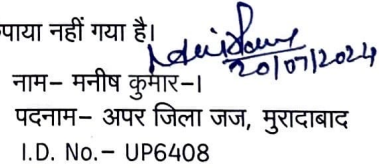 पाया नहीं गया है।
20/07/2024
नाम– मनीष कुमार–I
पदनाम– अपर जिला जज, मुरादाबाद
I.D. No.– UP6408